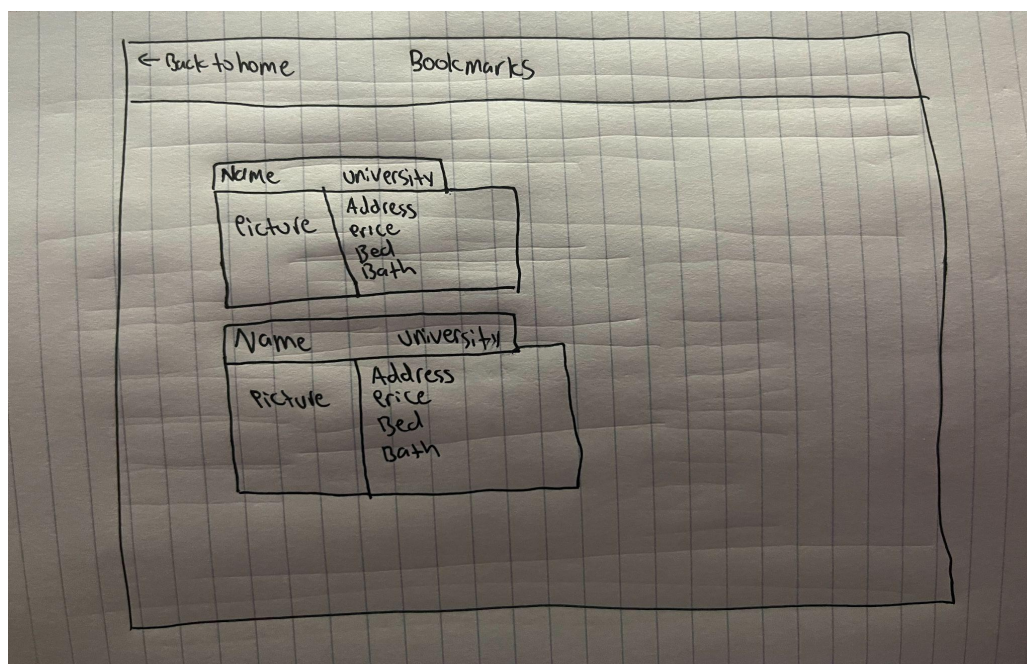 ← Back to home Bookmarks
Name university
Picture
Address
Price
Bed
Bath
Name university
Picture
Address
Price
Bed
Bath